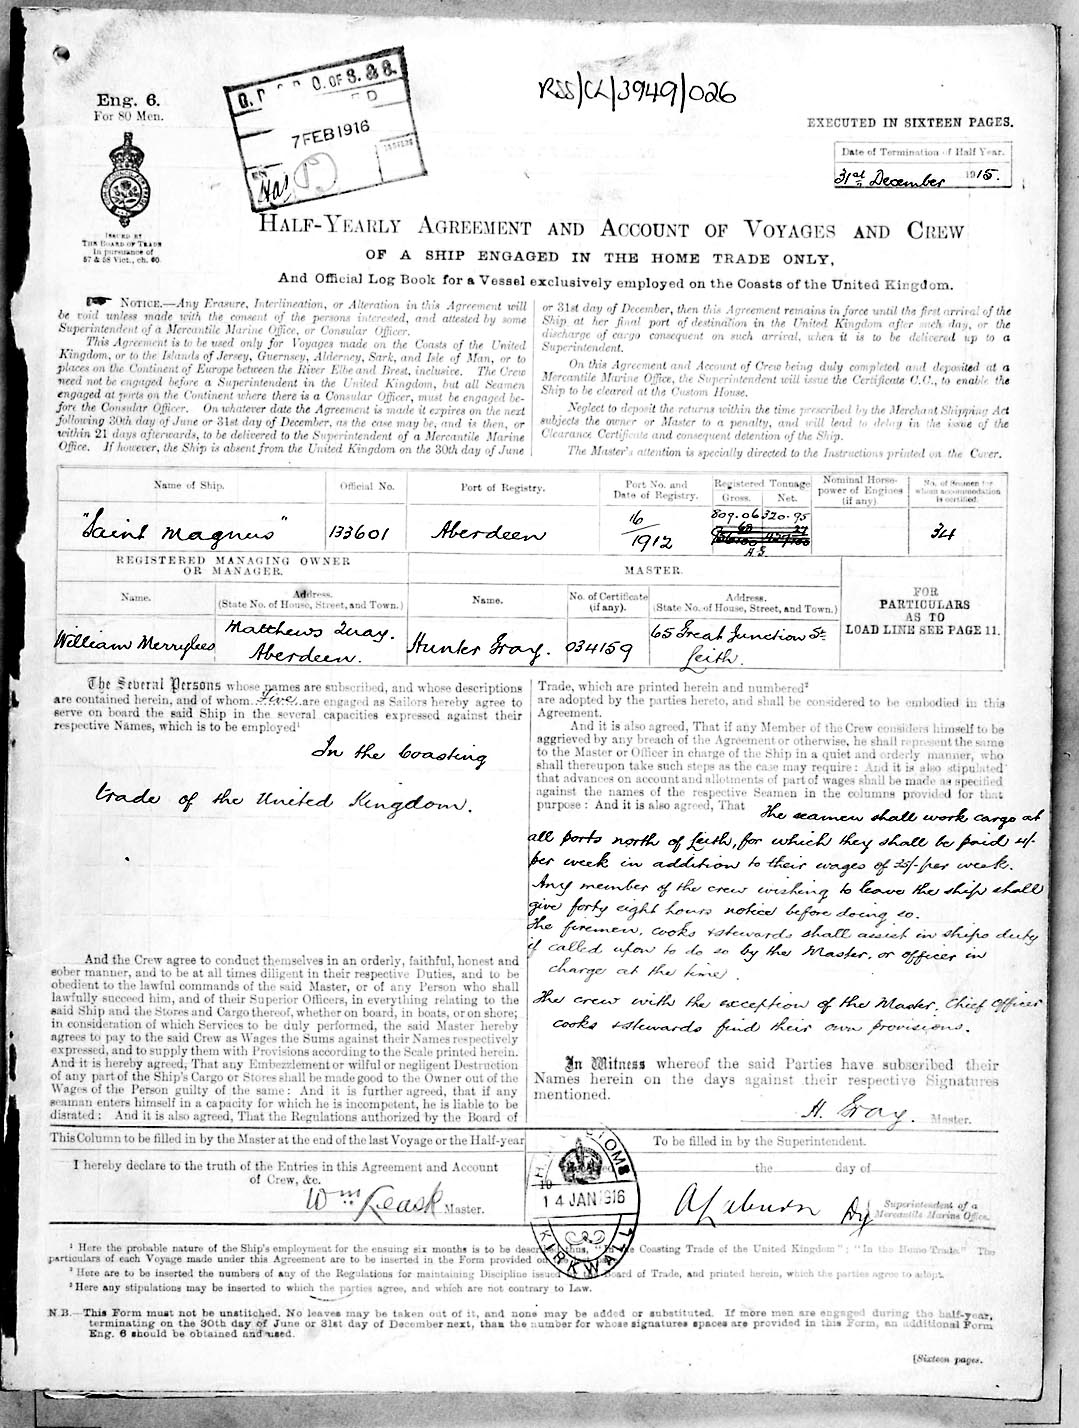 RSS/CL/3949/026
Eng. 6.
For 80 Men.
O. OF S. & S.
7 FEB 1916
EXECUTED IN SIXTEEN PAGES.
Date of Termination of Half Year.
31st December 1915.
ISSUED BY
THE BOARD OF TRADE
In pursuance of
57 & 58 Vict., ch. 60.
HALF-YEARLY AGREEMENT AND ACCOUNT OF VOYAGES AND CREW
OF A SHIP ENGAGED IN THE HOME TRADE ONLY,
And Official Log Book for a Vessel exclusively employed on the Coasts of the United Kingdom.
NOTICE.—Any Erasure, Interlineation, or Alteration in this Agreement will
be void unless made with the consent of the persons interested, and attested by some
Superintendent of a Mercantile Marine Office, or Consular Officer.
This Agreement is to be used only for Voyages made on the Coasts of the United
Kingdom, or to the Islands of Jersey, Guernsey, Alderney, Sark, and Isle of Man, or to
places on the Continent of Europe between the River Elbe and Brest, inclusive. The Crew
need not be engaged before a Superintendent in the United Kingdom, but all Seamen
engaged at ports on the Continent where there is a Consular Officer, must be engaged be-
fore the Consular Officer. On whatever date the Agreement is made it expires on the next
following 30th day of June or 31st day of December, as the case may be, and is then, or
within 21 days afterwards, to be delivered to the Superintendent of a Mercantile Marine
Office. If however, the Ship is absent from the United Kingdom on the 30th day of June
or 31st day of December, then this Agreement remains in force until the first arrival of the
Ship at her final port of destination in the United Kingdom after such day, or the
discharge of cargo consequent on such arrival, when it is to be delivered up to a
Superintendent.
On this Agreement and Account of Crew being duly completed and deposited at a
Mercantile Marine Office, the Superintendent will issue the Certificate C.C., to enable the
Ship to be cleared at the Custom House.
Neglect to deposit the returns within the time prescribed by the Merchant Shipping Act
subjects the owner or Master to a penalty, and will lead to delay in the issue of the
Clearance Certificate and consequent detention of the Ship.
The Master's attention is specially directed to the Instructions printed on the Cover.
Name of Ship. Official No. Port of Registry. Port No. and Date of Registry. Registered Tonnage Gross. Net. Nominal Horse-power of Engines (if any). No. of Seamen for whom accommodation is certified.
"Saint Magnus" 133601 Aberdeen 16/1912 809.06 320.95 34
H.G.
REGISTERED MANAGING OWNER OR MANAGER. MASTER.
Name. Address. (State No. of House, Street, and Town.) Name. No. of Certificate (if any). Address. (State No. of House, Street, and Town.)
FOR
PARTICULARS
AS TO
LOAD LINE SEE PAGE 11.
William Merrylees Matthews Quay. Aberdeen. Hunter Gray. 034159 65 Great Junction St. Leith.
The Several Persons whose names are subscribed, and whose descriptions
are contained herein, and of whom five are engaged as Sailors hereby agree to
serve on board the said Ship in the several capacities expressed against their
respective Names, which is to be employed¹
In the Coasting
trade of the United Kingdom.
And the Crew agree to conduct themselves in an orderly, faithful, honest and
sober manner, and to be at all times diligent in their respective Duties, and to be
obedient to the lawful commands of the said Master, or of any Person who shall
lawfully succeed him, and of their Superior Officers, in everything relating to the
said Ship and the Stores and Cargo thereof, whether on board, in boats, or on shore;
in consideration of which Services to be duly performed, the said Master hereby
agrees to pay to the said Crew as Wages the Sums against their Names respectively
expressed, and to supply them with Provisions according to the Scale printed herein.
And it is hereby agreed, That any Embezzlement or wilful or negligent Destruction
of any part of the Ship's Cargo or Stores shall be made good to the Owner out of the
Wages of the Person guilty of the same: And it is further agreed, that if any
seaman enters himself in a capacity for which he is incompetent, he is liable to be
disrated: And it is also agreed, That the Regulations authorized by the Board of
Trade, which are printed herein and numbered²
are adopted by the parties hereto, and shall be considered to be embodied in this
Agreement.
And it is also agreed, That if any Member of the Crew considers himself to be
aggrieved by any breach of the Agreement or otherwise, he shall represent the same
to the Master or Officer in charge of the Ship in a quiet and orderly manner, who
shall thereupon take such steps as the case may require: And it is also stipulated
that advances on account and allotments of part of wages shall be made as specified
against the names of the respective Seamen in the columns provided for that
purpose: And it is also agreed, That The seamen shall work cargo at
all ports north of Leith, for which they shall be paid 4/-
per week in addition to their wages of 35/- per week.
Any member of the crew wishing to leave the ship shall
give forty eight hours notice before doing so.
The firemen, cooks & stewards shall assist in ships duty
if called upon to do so by the Master, or officer in
charge at the time.
The crew with the exception of the Master, Chief Officer
cooks & stewards find their own provisions.
In Witness whereof the said Parties have subscribed their
Names herein on the days against their respective Signatures
mentioned.
H. Gray. Master.
This Column to be filled in by the Master at the end of the last Voyage or the Half-year
I hereby declare to the truth of the Entries in this Agreement and Account
of Crew, &c.
Wm Leask Master.
To be filled in by the Superintendent.
the day of
Superintendent of a
Mercantile Marine Office.
CUSTOMS
14 JAN 1916
KIRKWALL
¹ Here the probable nature of the Ship's employment for the ensuing six months is to be described thus, "In the Coasting Trade of the United Kingdom"; "In the Home Trade." The
particulars of each Voyage made under this Agreement are to be inserted in the Form provided on
² Here are to be inserted the numbers of any of the Regulations for maintaining Discipline issued by the Board of Trade, and printed herein, which the parties agree to adopt.
³ Here any stipulations may be inserted to which the parties agree, and which are not contrary to Law.
N.B.—This Form must not be unstitched. No leaves may be taken out of it, and none may be added or substituted. If more men are engaged during the half-year,
terminating on the 30th day of June or 31st day of December next, than the number for whose signatures spaces are provided in this Form, an additional Form
Eng. 6 should be obtained and used.
[Sixteen pages.